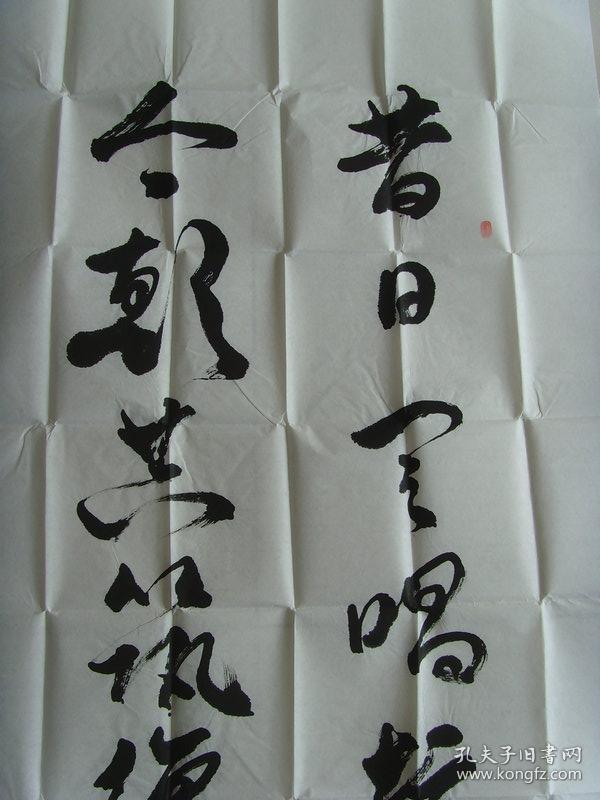 昔日唱
今朝共筑
孔夫子旧书网
www.kongfz.com